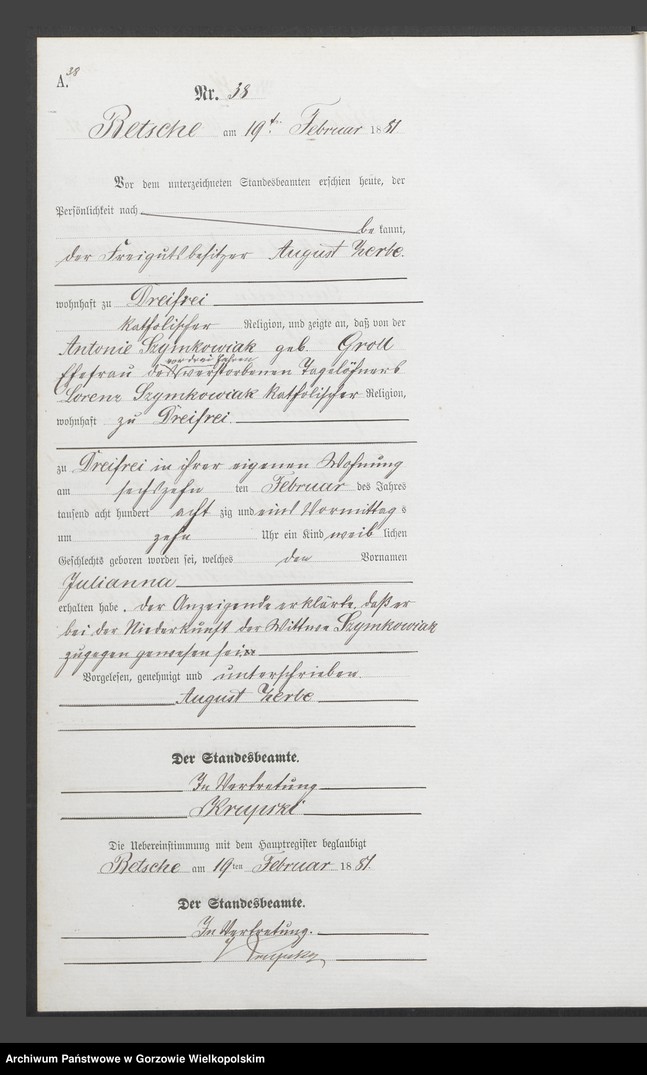 38
A.
Nr. 38
Betsche am 19t. Februar 1881
Vor dem unterzeichneten Standesbeamten erschien heute, der
Persönlichkeit nach
be kannt,
der Freigutsbesitzer August Zerbe.
wohnhaft zu Dreifrei
katholischer Religion, und zeigte an, daß von der
Antonie Szymkowiak geb. Groll
vor drei Jahren
Ehefrau des verstorbenen Tagelöhners
Lorenz Szymkowiak katholischer Religion,
wohnhaft zu Dreifrei.
zu Dreifrei in ihrer eigenen Wohnung
am sechszehn ten Februar des Jahres
tausend acht hundert acht zig und eins Vormittag s
um zehn Uhr ein Kind weib lichen
Geschlechts geboren worden sei, welches den Vornamen
Julianna
erhalten habe. Der Anzeigende erklärte, daß er
bei der Niederkunft der Wittwe Szymkowiak
zugegen gewesen sei.
Vorgelesen, genehmigt und unterschrieben
August Zerbe
Der Standesbeamte.
In Vertretung
Krupski
Die Uebereinstimmung mit dem Hauptregister beglaubigt
Betsche am 19ten Februar 1881.
Der Standesbeamte.
In Vertretung.
Archiwum Państwowe w Gorzowie Wielkopolskim